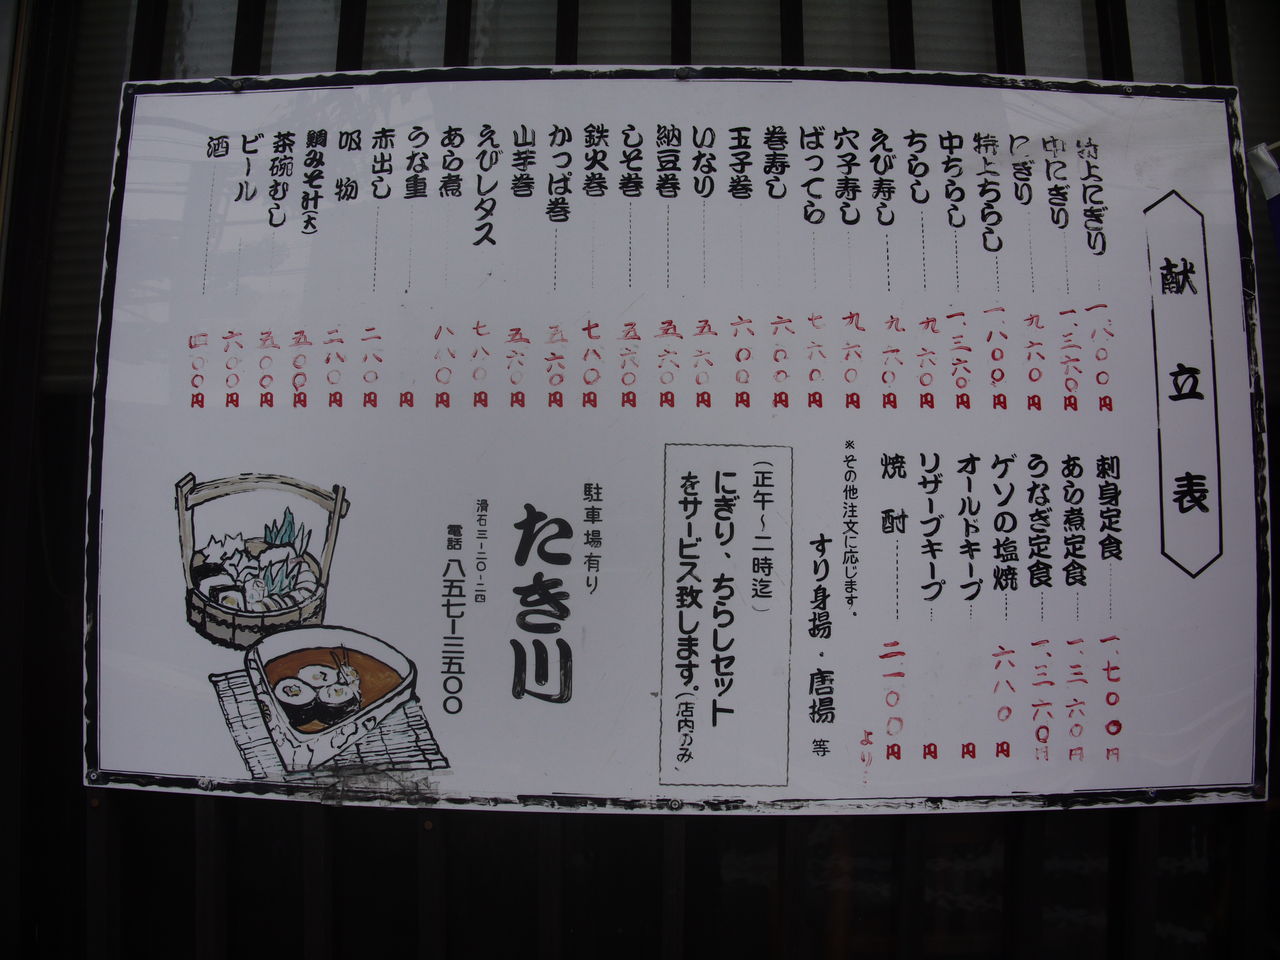 献立表
特上にぎり 一、八〇〇円
中にぎり 一、三六〇円
にぎり 九六〇円
特上ちらし 一、八〇〇円
中ちらし 一、三六〇円
ちらし 九六〇円
えび寿し 九六〇円
穴子寿し 九六〇円
ばってら 七六〇円
巻寿し 六〇〇円
玉子巻 六〇〇円
いなり 五六〇円
納豆巻 五六〇円
しそ巻 五六〇円
鉄火巻 七八〇円
かっぱ巻 五六〇円
山芋巻 五六〇円
えびレタス 七八〇円
あら煮 八八〇円
うな重 円
赤出し 二八〇円
吸物 二八〇円
鯛みそ汁(大) 五〇〇円
茶碗むし 五〇〇円
ビール 六〇〇円
酒 四〇〇円
刺身定食 一、七〇〇円
あら煮定食 一、三六〇円
うなぎ定食 一、三六〇円
ゲソの塩焼 六八〇円
オールドキープ 円
リザーブキープ 円
焼酎 二、一〇〇円より
※その他注文に応じます。
すり身揚・唐揚 等
(正午〜二時迄)
にぎり、ちらしセット
をサービス致します。(店内のみ)
駐車場有り
たき川
滑石三ー二〇ー二四
電話 八五七ー三五〇〇